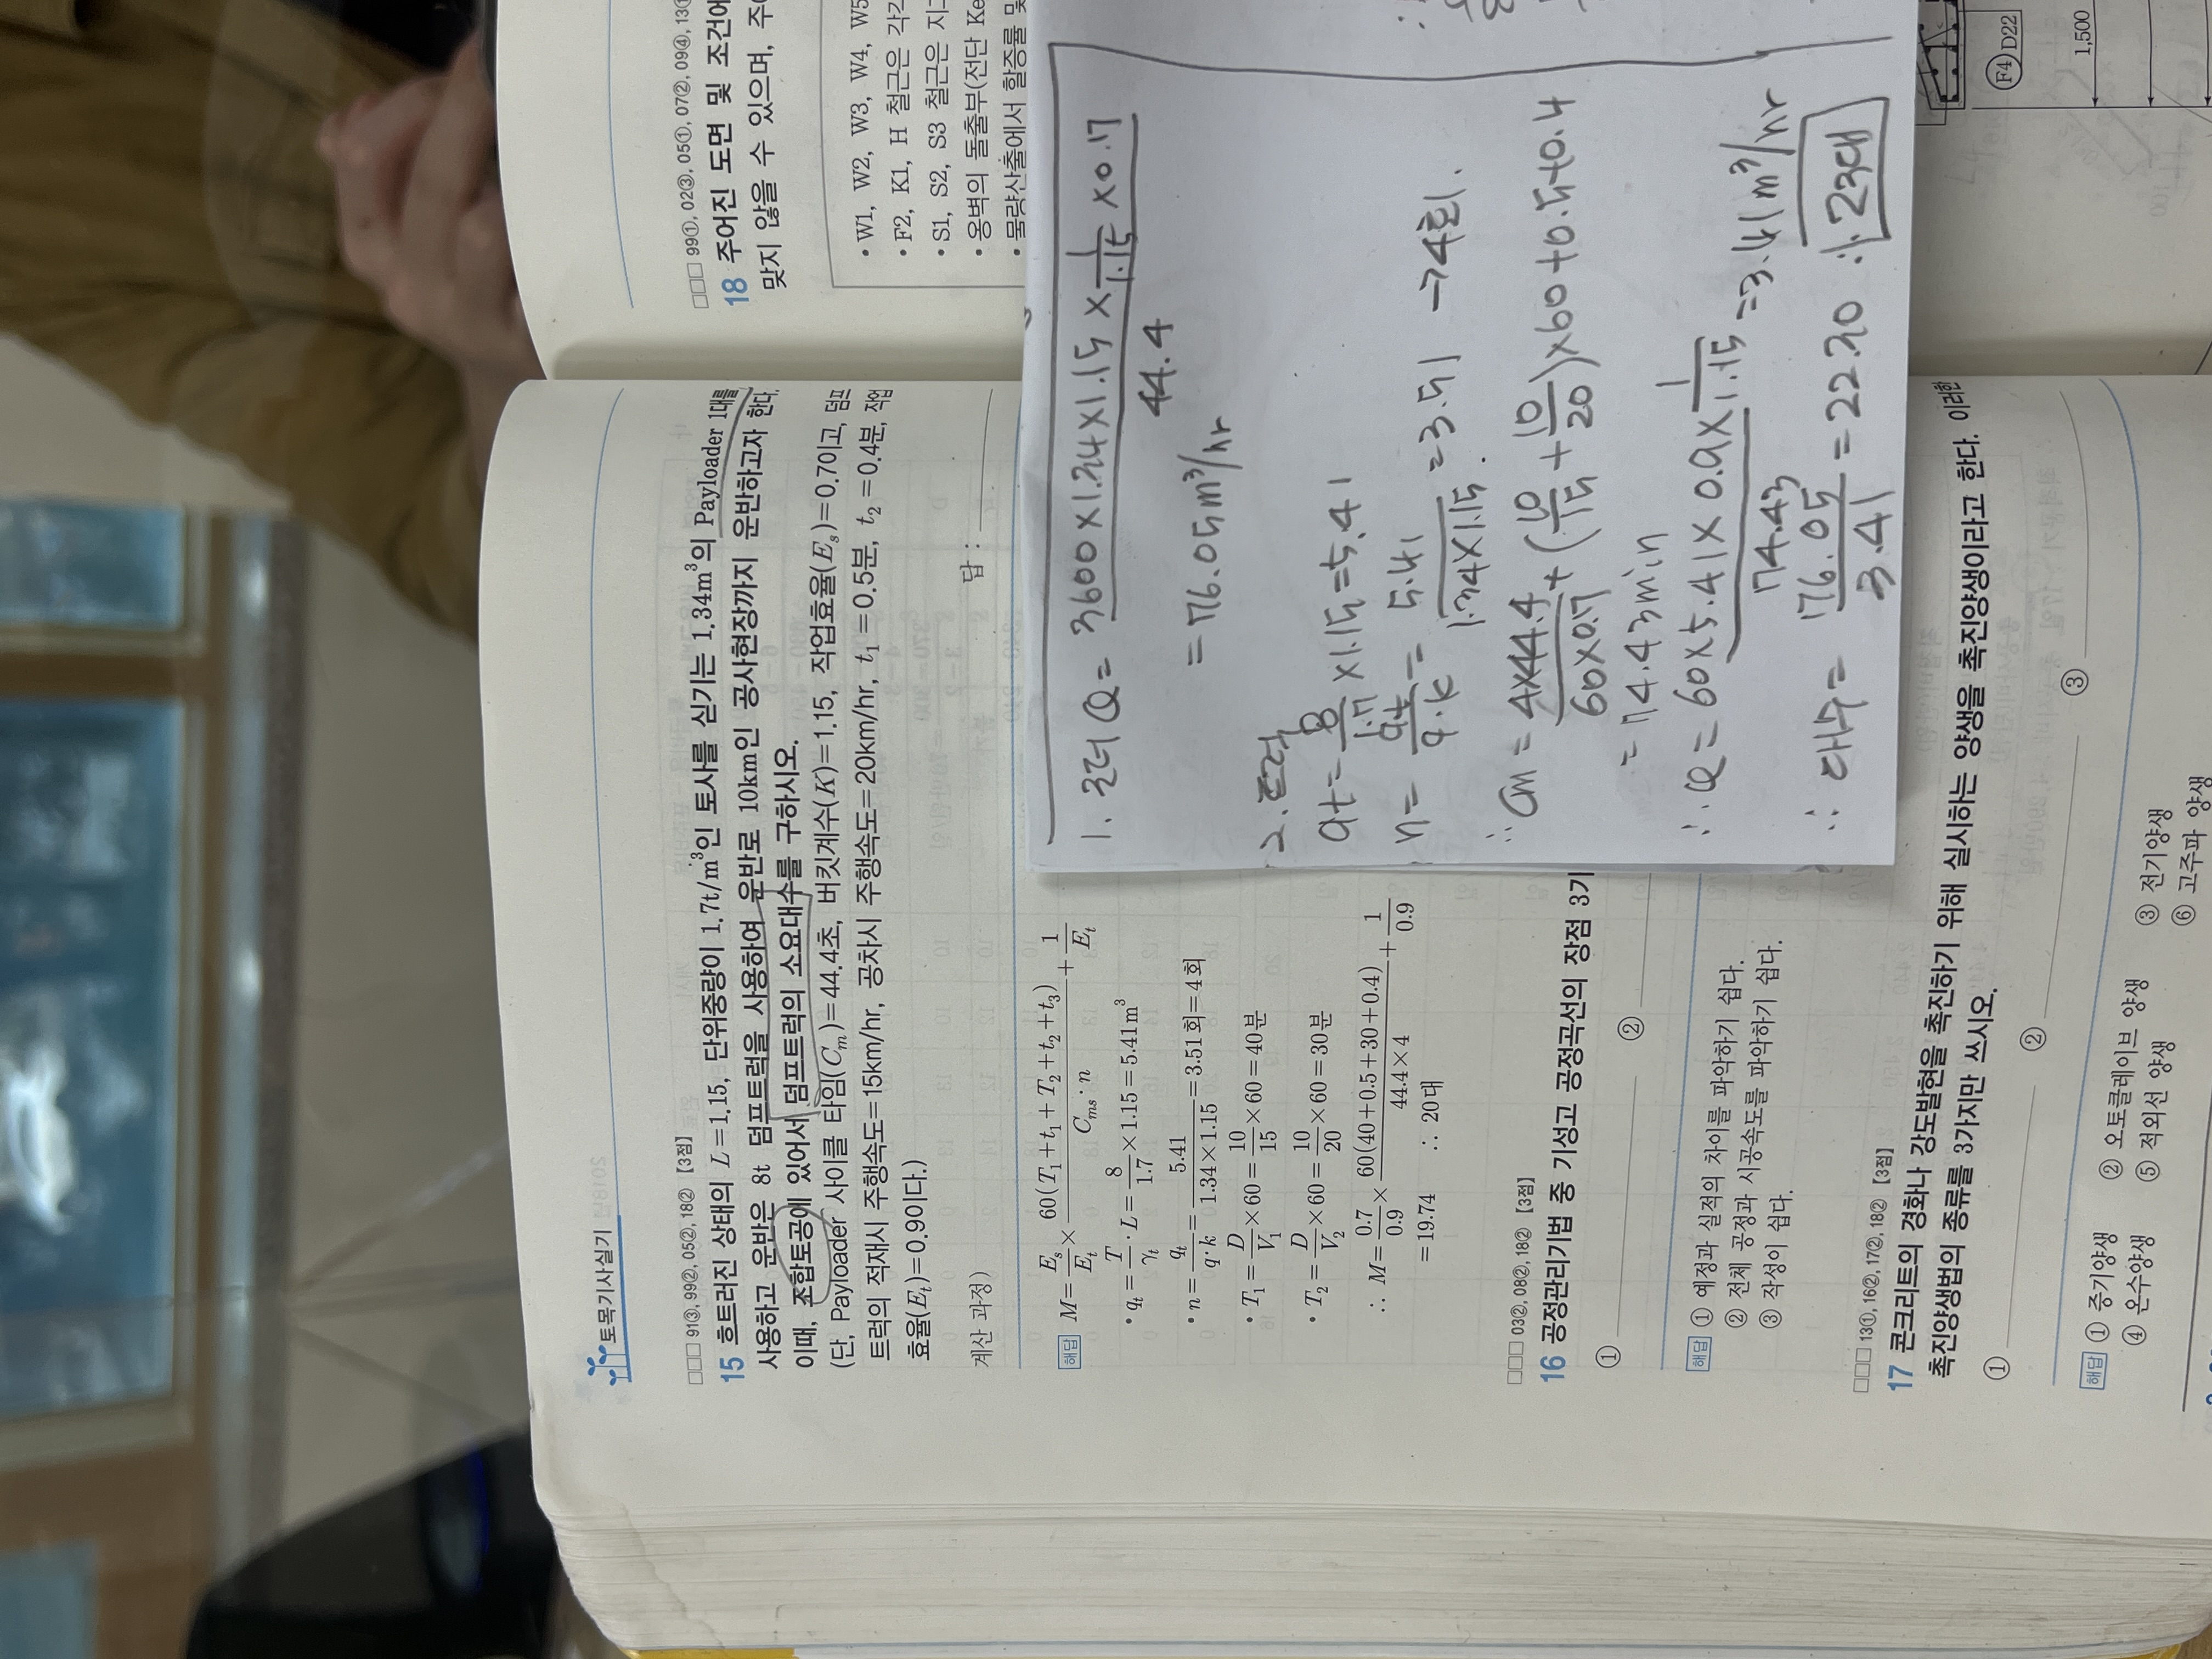 토목기사실기
□□□ 91③, 99②, 05②, 18② [3점]
15 흐트러진 상태의 L=1.15, 단위중량이 1.7t/m³인 토사를 싣기는 1.34m³의 Payloader 1대를
사용하고 운반은 8t 덤프트럭을 사용하여 운반로 10km인 공사현장까지 운반하고자 한다.
이때, 조합토공에 있어서 덤프트럭의 소요대수를 구하시오.
(단, Payloader 사이클 타임(Cm)=44.4초, 버킷계수(K)=1.15, 작업효율(Es)=0.7이고, 덤프
트럭의 적재시 주행속도=15km/hr, 공차시 주행속도=20km/hr, t₁=0.5분, t₂=0.4분, 작업
효율(Et)=0.9이다.)
계산 과정)
답 :
해답 M = Es/Et × 60(T₁+t₁+T₂+t₂+t₃)/(Cms·n) + 1/Et
• qt = T/γt · L = 8/1.7 × 1.15 = 5.41m³
• n = qt/(q·k) = 5.41/(1.34×1.15) = 3.51회 = 4회
• T₁ = D/V₁ × 60 = 10/15 × 60 = 40분
• T₂ = D/V₂ × 60 = 10/20 × 60 = 30분
∴ M = 0.7/0.9 × 60(40+0.5+30+0.4)/(44.4×4) + 1/0.9
= 19.74 ∴ 20대
□□□ 03②, 08②, 18② [3점]
16 공정관리기법 중 기성고 공정곡선의 장점 3기
① ②
해답 ① 예정과 실적의 차이를 파악하기 쉽다.
② 전체 공정과 시공속도를 파악하기 쉽다.
③ 작성이 쉽다.
□□□ 13①, 16②, 17②, 18② [3점]
17 콘크리트의 경화나 강도발현을 촉진하기 위해 실시하는 양생을 촉진양생이라고 한다. 이러한
촉진양생법의 종류를 3가지만 쓰시오.
① ② ③
해답 ① 증기양생 ② 오토클레이브 양생 ③ 전기양생
④ 온수양생 ⑤ 적외선 양생 ⑥ 고주파 양생
1. 로더 Q = 3600×1.34×1.15×1/1.15×0.7 / 44.4
= 76.05m³/hr
2. 트럭
qt = 8/1.7 ×1.15 = 5.41
n = qt/(q·k) = 5.41/(1.34×1.15) = 3.51 → 4회.
∴ Cm = 4×44.4/(60×0.7) + (10/15 + 10/20)×60+0.5+0.4
= 74.43min
∴ Q = 60×5.41×0.9×1/1.15 / 74.43 = 3.41m³/hr
∴ 대수 = 76.05/3.41 = 22.30 ∴ 23대
□□□ 99①, 02③, 05①, 07②, 09④, 13①
18 주어진 도면 및 조건에
맞지 않을 수 있으며, 주어
• W1, W2, W3, W4, W5
• F2, K1, H 철근은 각각
• S1, S2, S3 철근은 지그
• 옹벽의 돌출부(전단 Ke
• 물량산출에서 할증률 및
F4 D22
1,500